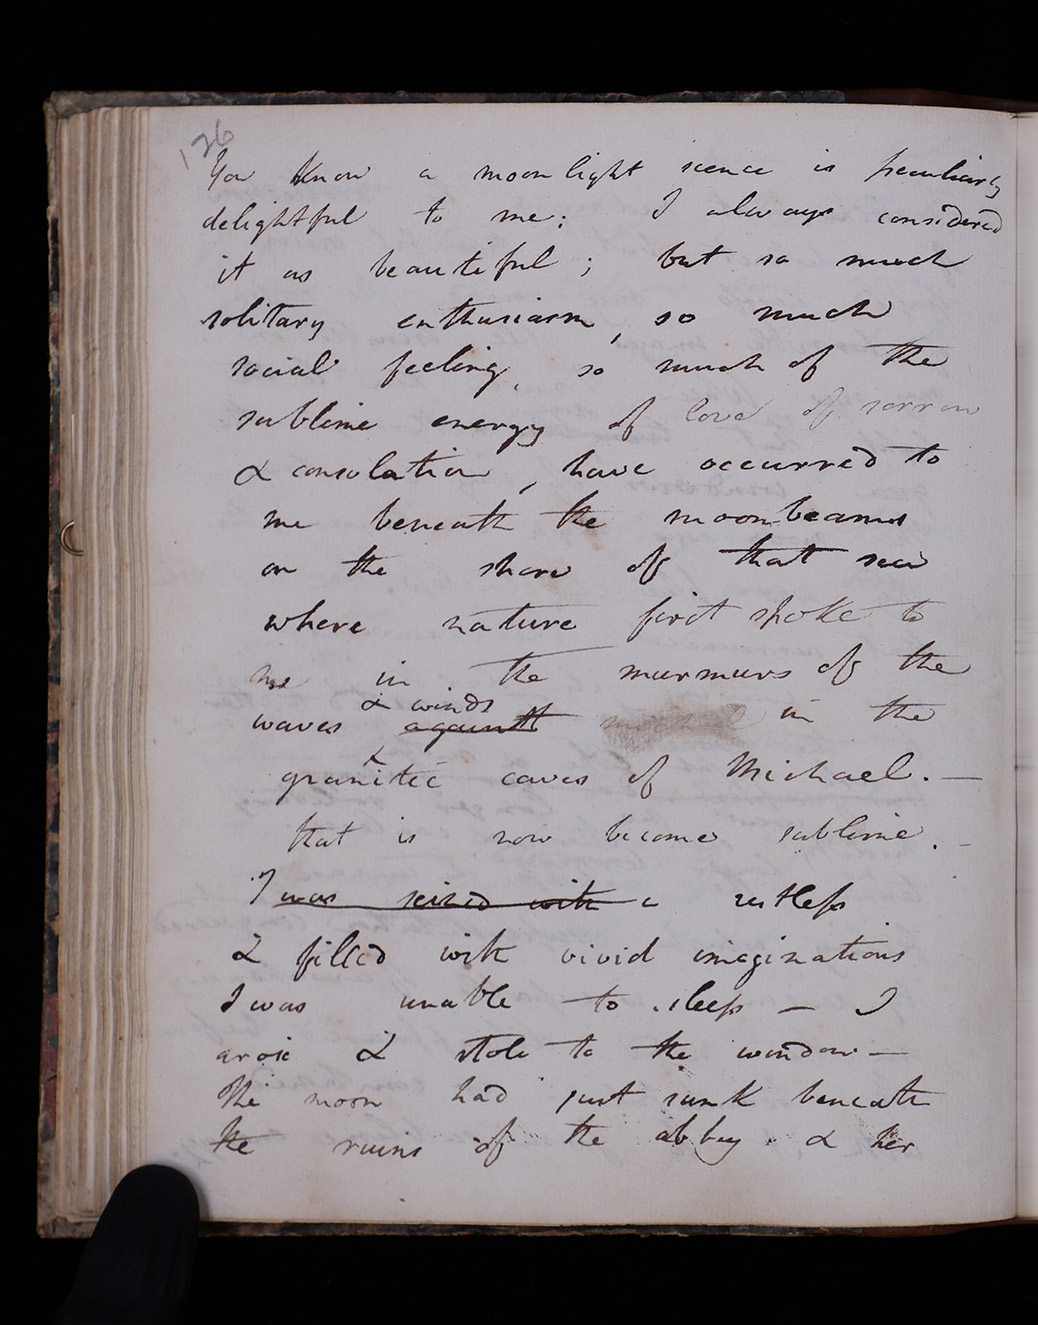 126
You know a moonlight scence is peculiarly
delightful to me; I always considered
it as beautiful; but so much
solitary enthusiasm, so much
social feeling, so much of the
sublime energy of love of sorrow
& consolation, have occurred to
me beneath the moonbeams
on the shore of that sea
where nature first spoke to
me in the murmurs of the
& winds
waves against in the
granitic caves of Michael. —
that is now become sublime. -
I was seized with a restless
& filled with vivid imaginations
I was unable to sleep — I
arose & stole to the window —
The moon had just sunk beneath
the ruins of the abbey & her